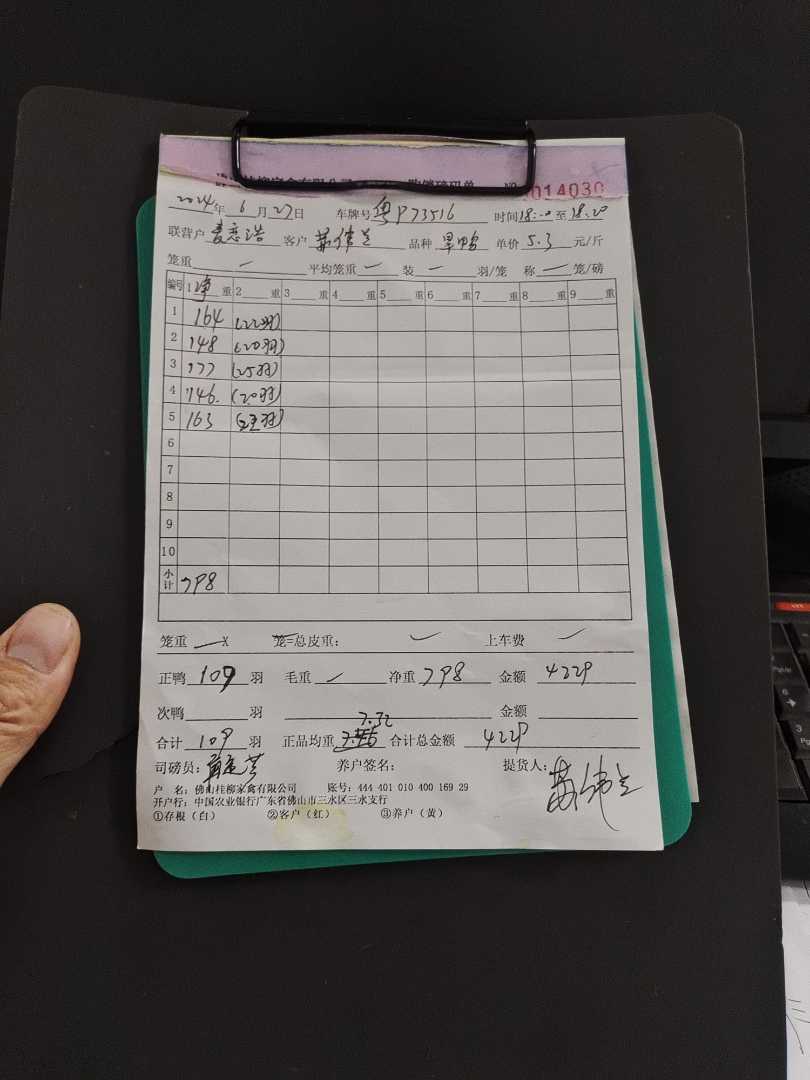 № 0014030
2024年6月27日 车牌号粤P73516 时间18:00至18:20
联营户麦志浩 客户 品种旱鸭 单价5.3元/斤
笼重 平均笼重 装 羽/笼 称 笼/磅
编号 1净重 2 重 3 重 4 重 5 重 6 重 7 重 8 重 9 重
1 164 (22羽)
2 148 (20羽)
3 177 (25羽)
4 146. (20羽)
5 163 (22羽)
6
7
8
9
10
小计 798
笼重 X 笼=总皮重: 上车费
正鸭109羽 毛重 净重798 金额4229
次鸭 羽 金额
7.32
合计109羽 正品均重 合计总金额4229
司磅员: 养户签名: 提货人:
户 名:佛山桂柳家禽有限公司 账号:444 401 010 400 169 29
开户行:中国农业银行广东省佛山市三水区三水支行
①存根(白) ②客户(红) ③养户(黄)